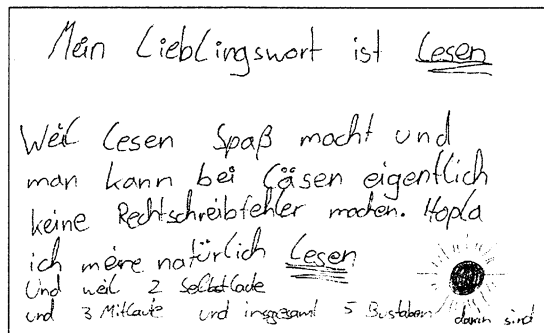 Mein Lieblingswort ist Lesen
Weil Lesen Spaß macht und
man kann bei Läsen eigentlich
keine Rechtschreibfehler machen. Hopla
ich meine natürlich Lesen
Und weil 2 Selbstlaute
und 3 Mitlaute und insgesamt 5 Bustaben darin sind